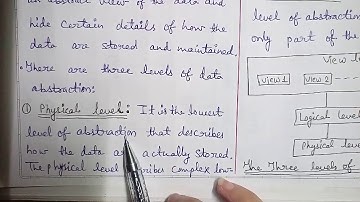 an abstract view of the data and
hide certain details of how the
data are stored and maintained.
• There are three levels of data
abstraction:
① Physical level: It is the lowest
level of abstraction that describes
how the data are actually stored.
The physical level describes complex low-
level of abstraction
only part of the
View l
View 1
View 2
Logical level
Physical level
The Three levels of